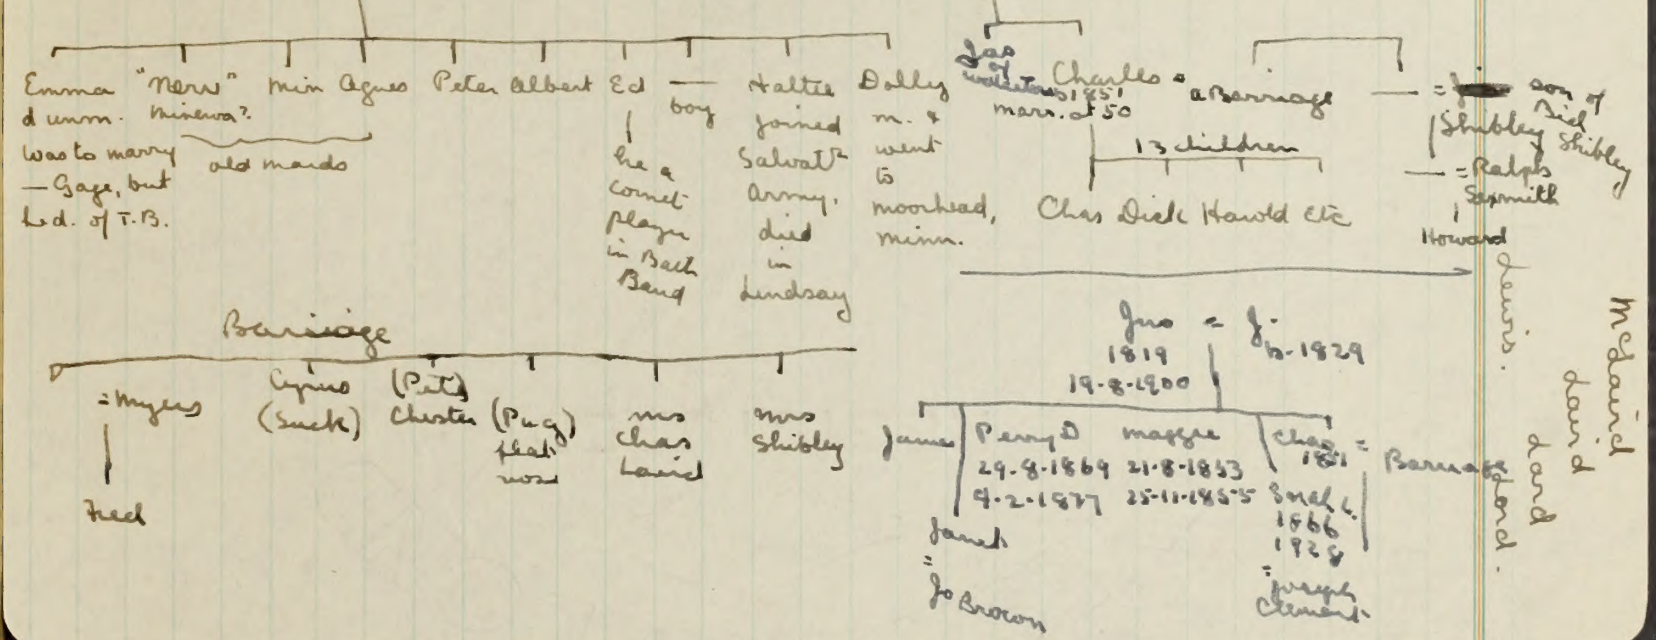 Emma
d unm.
was to marry
— Gage, but
he d. of T.B.
"Nerv"
Minerva?
Min
Agnes
old maids
Peter
Albert
Ed
he a
cornet
player
in Bath
Band
—
boy
Hattie
joined
Salvatn
Army,
died
in
Lindsay
Dolly
m. &
went
to
Moorhead,
Minn.
Jas
of
Charles =
b1851
marr. at 50
a Barriage
13 children
Chas Dick Harold etc
— =
Shibley
son of
Dick
Shibley
— = Ralph
Sexsmith
Howard
Barriage
= Myers
Fred
Cyrus
(Suck)
(Pete)
Chester
(Pug)
flat
nose
Mrs
Chas
Laird
Mrs
Shibley
Jno = J.
1819
19-8-1900
b. 1829
James
Perry D
29-8-1869
4-2-1877
Maggie
21-8-1853
25-11-1855
Chas =
1851
Barriage
Janet
=
Jo Brown
Sarah C.
1866
1928
= Joseph
Clement
Lewis. Lord.
McLaird
Laird
Lard